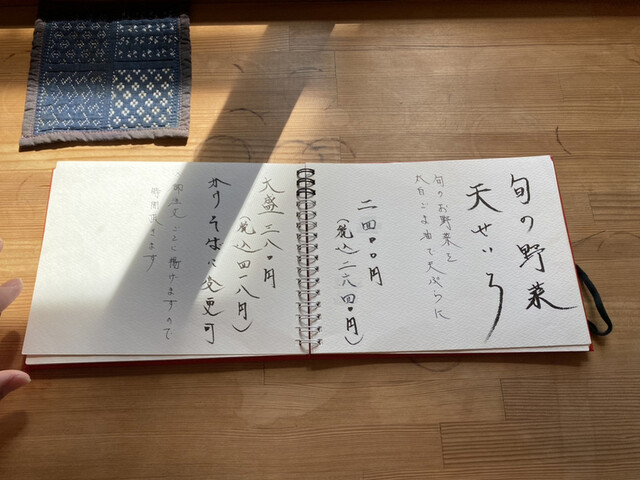 旬の野菜
天せいろ
旬のお野菜を
太白ごま油で天ぷらに
二四〇〇円
(税込二六四〇円)
大盛 三八〇円
(税込四一八円)
かけそばに変更可
ご注文ごとに揚げますので
頂きます